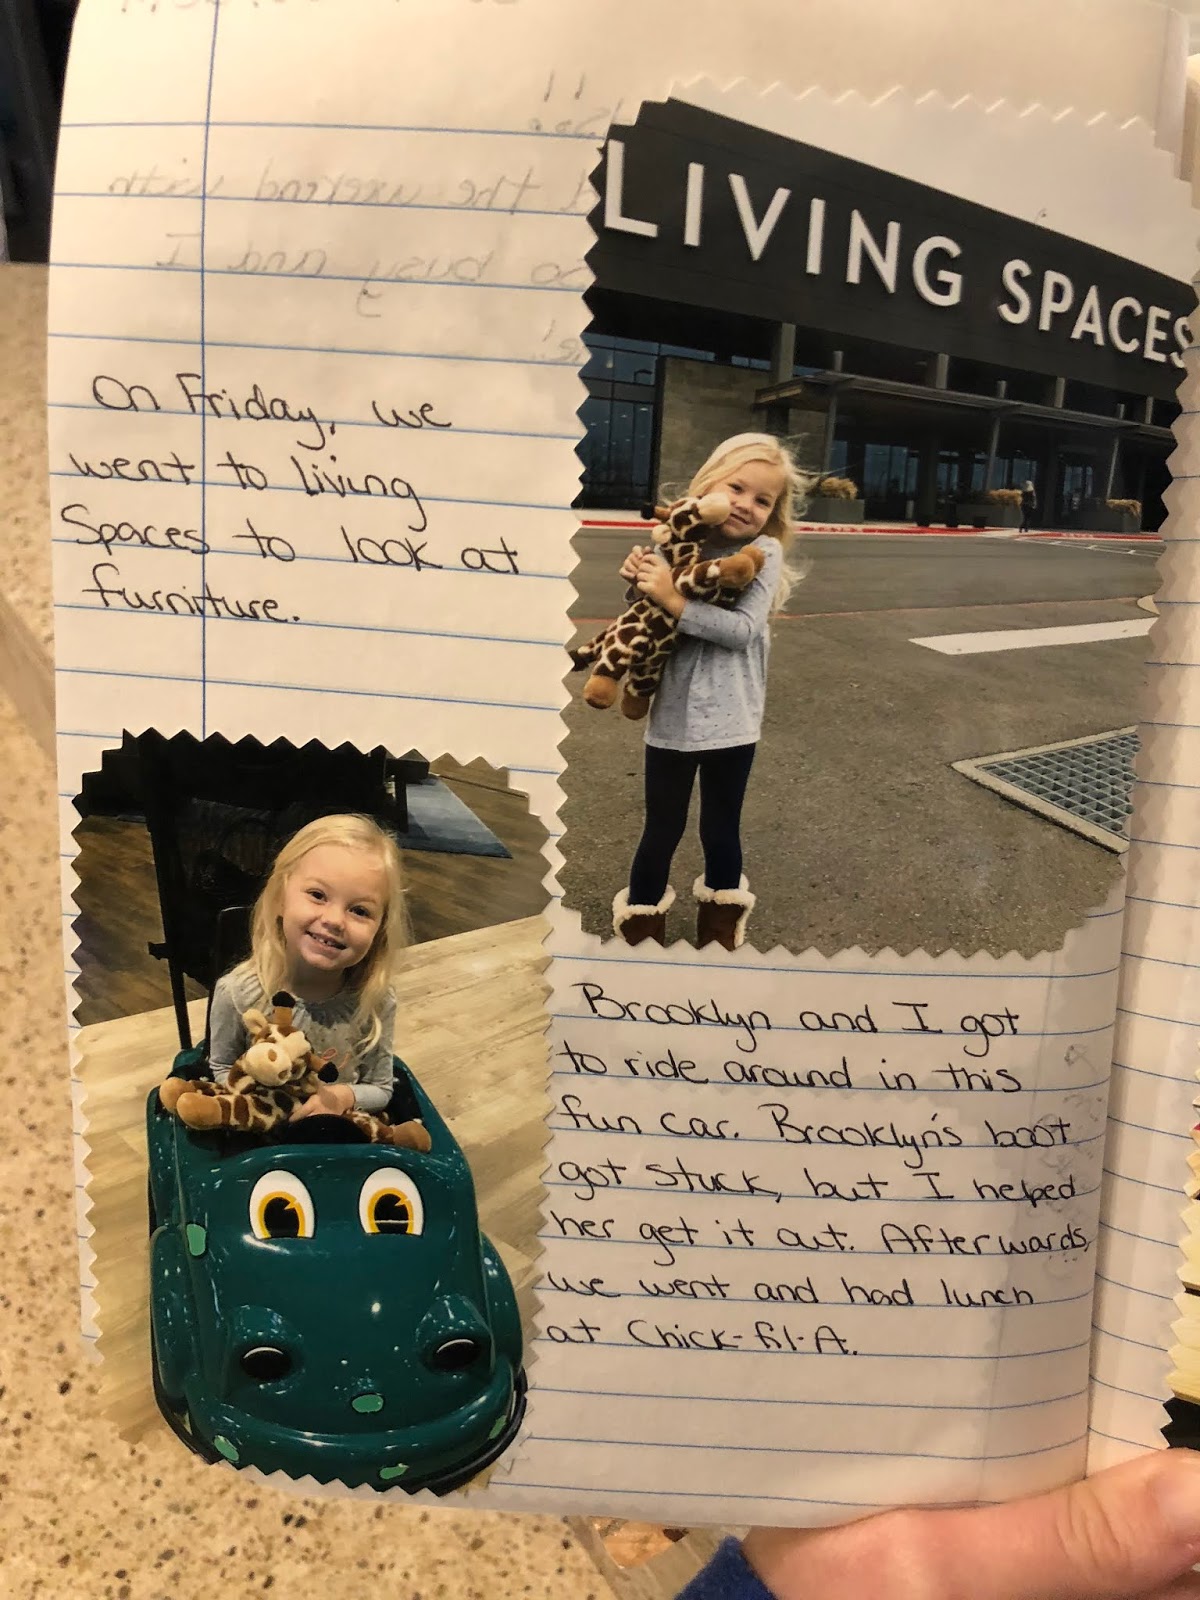 LIVING SPACES
On Friday, we
went to living
Spaces to look at
furniture.
Brooklyn and I got
to ride around in this
fun car. Brooklyn's boot
got stuck, but I helped
her get it out. Afterwards,
we went and had lunch
at Chick-fil-A.
the weekend with
so busy and I